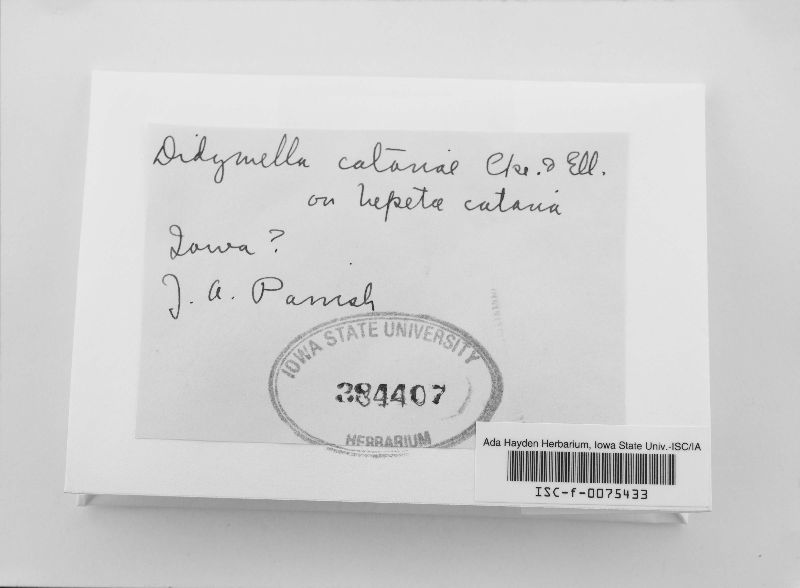 Didymella catariae Cke. & Ell.
on Nepeta cataria
Iowa?
J. A. Parrish
IOWA STATE UNIVERSITY
384407
HERBARIUM
Ada Hayden Herbarium, Iowa State Univ.-ISC/IA
ISC-f-0075433